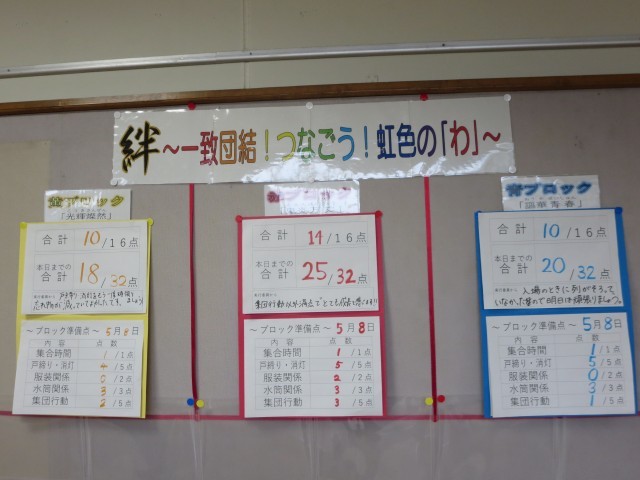 絆～一致団結！つなごう！虹色の「わ」～
黄ブロック
合計 10/16点
本日までの
合計 18/32点
～ブロック準備点～ 5月8日
内容 点数
集合時間 1/1点
戸締り・消灯 4/5点
服装関係 0/2点
水筒関係 3/3点
集団行動 2/5点
合計 14/16点
本日までの
合計 25/32点
～ブロック準備点～ 5月8日
内容 点数
集合時間 1/1点
戸締り・消灯 5/5点
服装関係 2/2点
水筒関係 3/3点
集団行動 3/5点
青ブロック
合計 10/16点
本日までの
合計 20/32点
入場のときに列がそろって
いなかったので明日は頑張りましょう。
～ブロック準備点～ 5月8日
内容 点数
集合時間 1/1点
戸締り・消灯 5/5点
服装関係 0/2点
水筒関係 3/3点
集団行動 1/5点